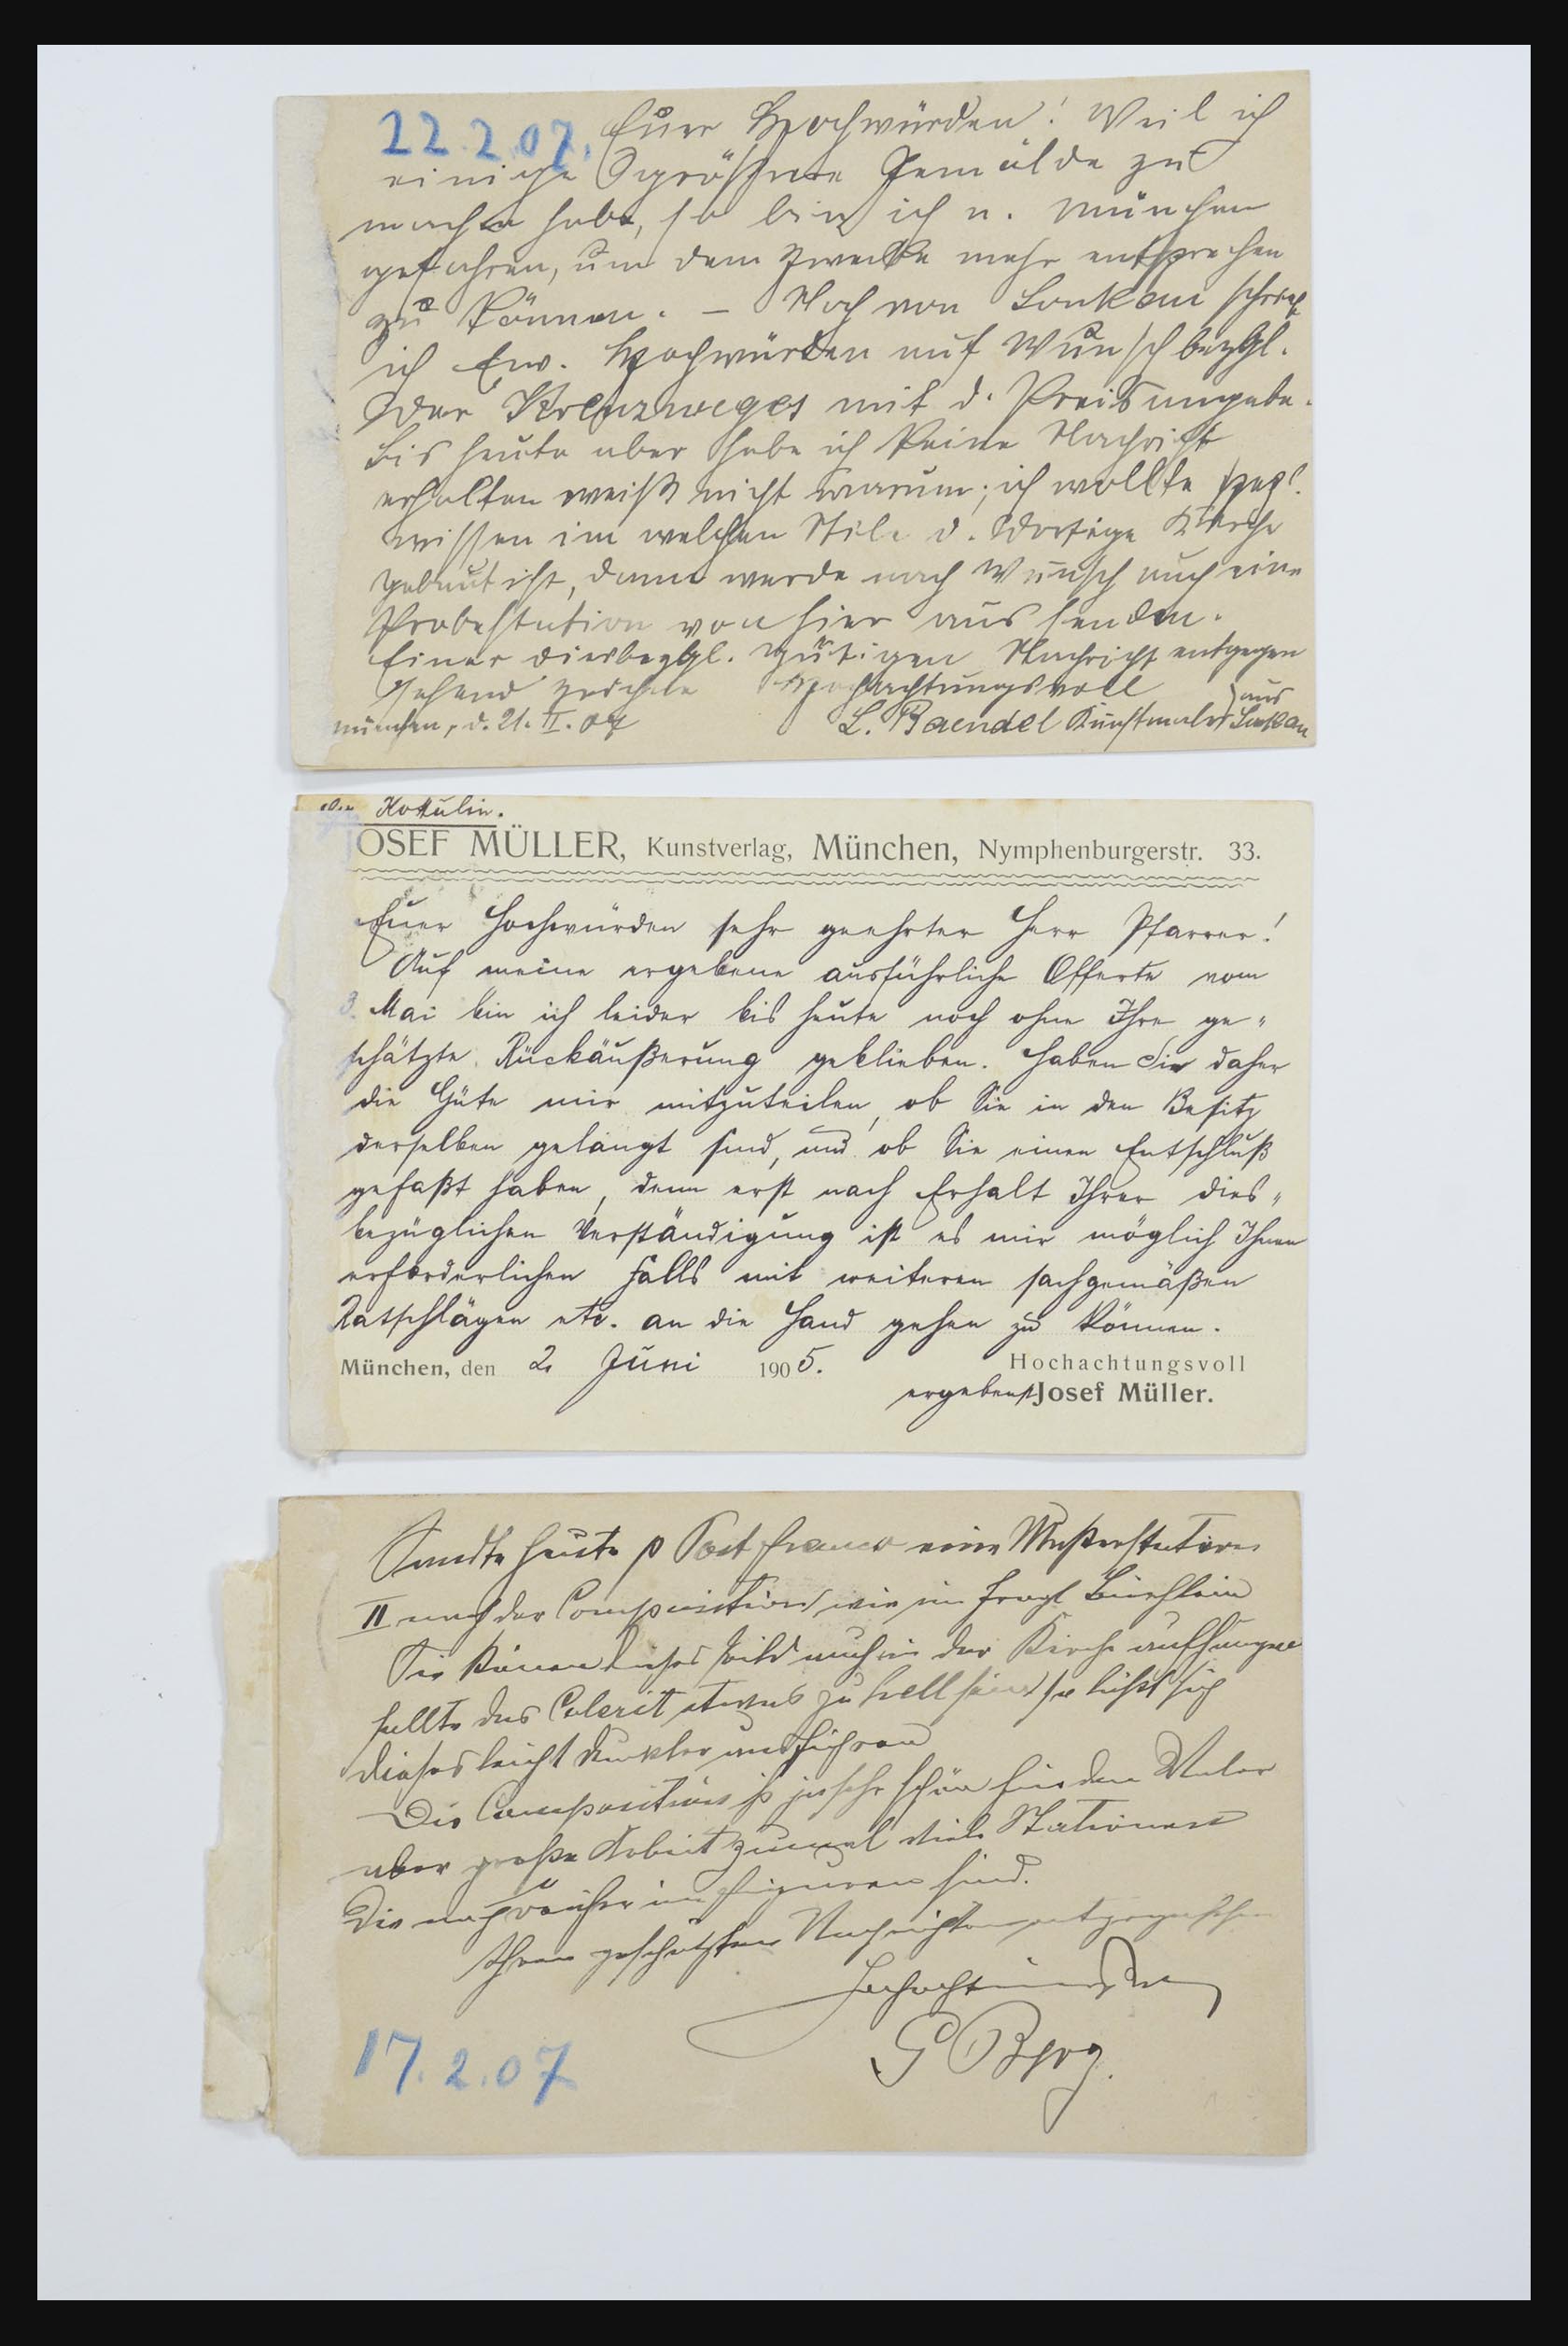 22.2.07. Euer Hochwürden! Weil ich
einige größere Gemälde zu
machen habe, so bin ich n. München
gefahren, um dem Zwecke mehr entsprechen
zu können. – Noch von Lonkau schrieb
ich Euv. Hochwürden auf Wunsch bezgl.
der Kreuzweges mit d. Preisangabe.
Bis heute aber habe ich keine Nachricht
erhalten weiß nicht warum; ich wollte spezl.
wissen im welchen Stile d. dortige Kirche
gebaut ist, dann werde nach Wunsch auch eine
Probestation von hier aus senden.
Einer diesbezgl. gütigen Nachricht entgegen
sehend zeichne Hochachtungsvoll
München, d. 21. II. 07 L. Baendel Kunstmaler aus Lonkau
Kottulin.
JOSEF MÜLLER, Kunstverlag, München, Nymphenburgerstr. 33.
Euer Hochwürden sehr geehrter Herr Pfarrer!
Auf meine ergebene ausführliche Offerte vom
3. Mai bin ich leider bis heute noch ohne Ihre ge„
schätzte Rückäußerung geblieben. Haben Sie daher
die Güte mir mitzuteilen, ob Sie in den Besitz
derselben gelangt sind, und ob Sie einen Entschluß
gefaßt haben, denn erst nach Erhalt Ihrer dies„
bezüglichen Verständigung ist es mir möglich Ihnen
erforderlichen Falls mit weiteren sachgemäßen
Ratschlägen etc. an die Hand gehen zu können.
München, den 2. Juni 1905. Hochachtungsvoll
ergebenst Josef Müller.
Sandte heute p Post franco eine Musterstation
II nach der Composition wie im fragl Büchlein
Sie können dieses Bild auch in der Kirche aufhängen
sollte das Colorit etwas zu hell sein so läßt sich
dieses leicht dunkler ausführen
Die Composition ist ja sehr schön für den Maler
aber große Arbeit zumal viele Stationen
die reich an Figuren sind.
Ihren geschätzten Nachrichten entgegensehen
Hochachtungsvoll
G Berg.
17.2.07